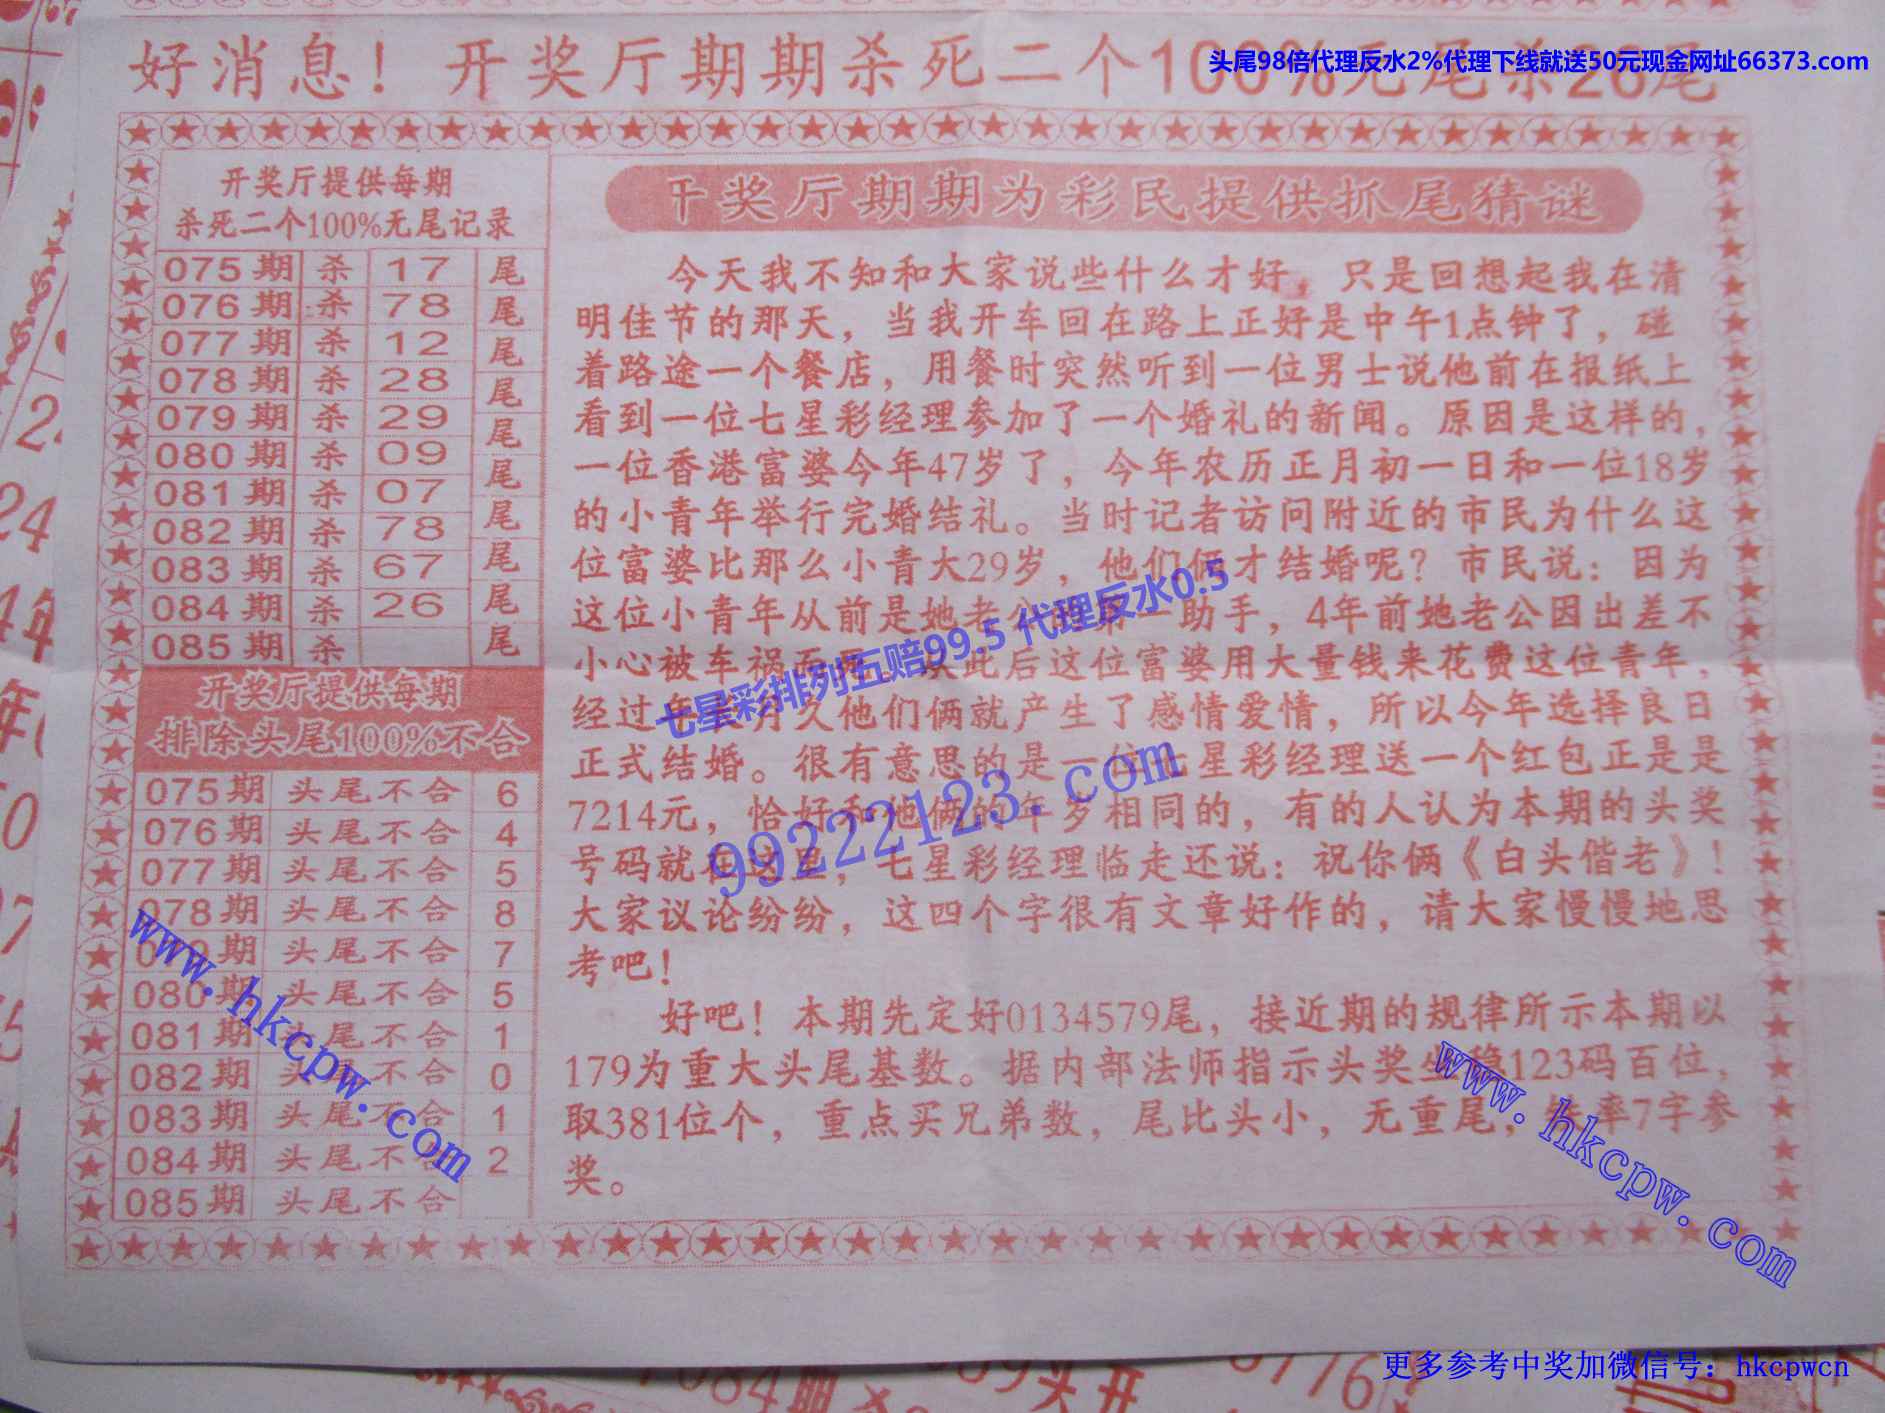 好消息！开奖厅期期杀死二个100%无尾杀26尾
头尾98倍代理反水2%代理下线就送50元现金网址66373.com
开奖厅提供每期
杀死二个100%无尾记录
075期 杀 17 尾
076期 杀 78 尾
077期 杀 12 尾
078期 杀 28 尾
079期 杀 29 尾
080期 杀 09 尾
081期 杀 07 尾
082期 杀 78 尾
083期 杀 67 尾
084期 杀 26 尾
085期 杀 尾
开奖厅提供每期
排除头尾100%不合
075期 头尾不合 6
076期 头尾不合 4
077期 头尾不合 5
078期 头尾不合 8
079期 头尾不合 7
080期 头尾不合 5
081期 头尾不合 1
082期 头尾不合 0
083期 头尾不合 1
084期 头尾不合 2
085期 头尾不合
奖厅期期为彩民提供抓尾猜谜
今天我不知和大家说些什么才好，只是回想起我在清
明佳节的那天，当我开车回在路上正好是中午1点钟了，碰
着路途一个餐店，用餐时突然听到一位男士说他前在报纸上
看到一位七星彩经理参加了一个婚礼的新闻。原因是这样的，
一位香港富婆今年47岁了，今年农历正月初一日和一位18岁
的小青年举行完婚结礼。当时记者访问附近的市民为什么这
位富婆比那么小青大29岁，他们俩才结婚呢？市民说：因为
这位小青年从前是她老公的第一助手，4年前她老公因出差不
小心被车祸 此后这位富婆用大量钱来花费这位青年，
经过年长月久他们俩就产生了感情爱情，所以今年选择良日
正式结婚。很有意思的是一位七星彩经理送一个红包正是是
7214元，恰好和他俩的年岁相同的，有的人认为本期的头奖
号码就在这里，七星彩经理临走还说：祝你俩《白头偕老》！
大家议论纷纷，这四个字很有文章好作的，请大家慢慢地思
考吧！
好吧！本期先定好0134579尾，接近期的规律所示本期以
179为重大头尾基数。据内部法师指示头奖坐稳123码百位，
取381位个，重点买兄弟数，尾比头小，无重尾， 率7字参
奖。
七星彩排列五赔99.5 代理反水0.5
99222123.com
www.hkcpw.com
www.hkcpw.com
更多参考中奖加微信号：hkcpwcn